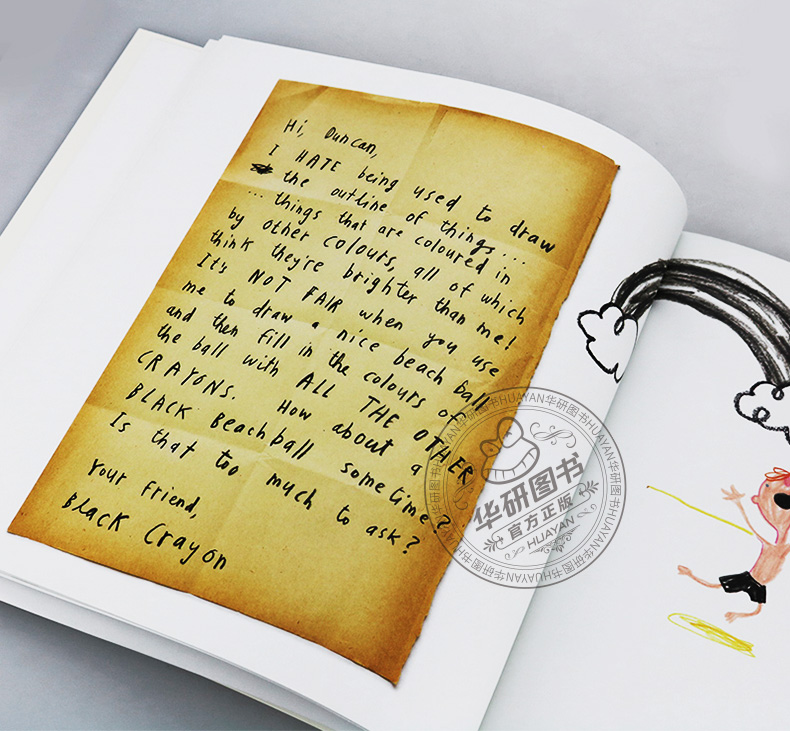 Hi, Duncan,
I HATE being used to draw
the outline of things...
... things that are coloured in
by other colours, all of which
think they're brighter than me!
It's NOT FAIR when you use
me to draw a nice beach ball
and then fill in the colours of
the ball with ALL THE OTHER
CRAYONS. How about a
BLACK Beachball sometime?
Is that too much to ask?
Your friend,
Black Crayon
华研图书HUAYAN华研图书HUAYAN华研图书HUAYAN
华研图书
官方正版
HUAYAN